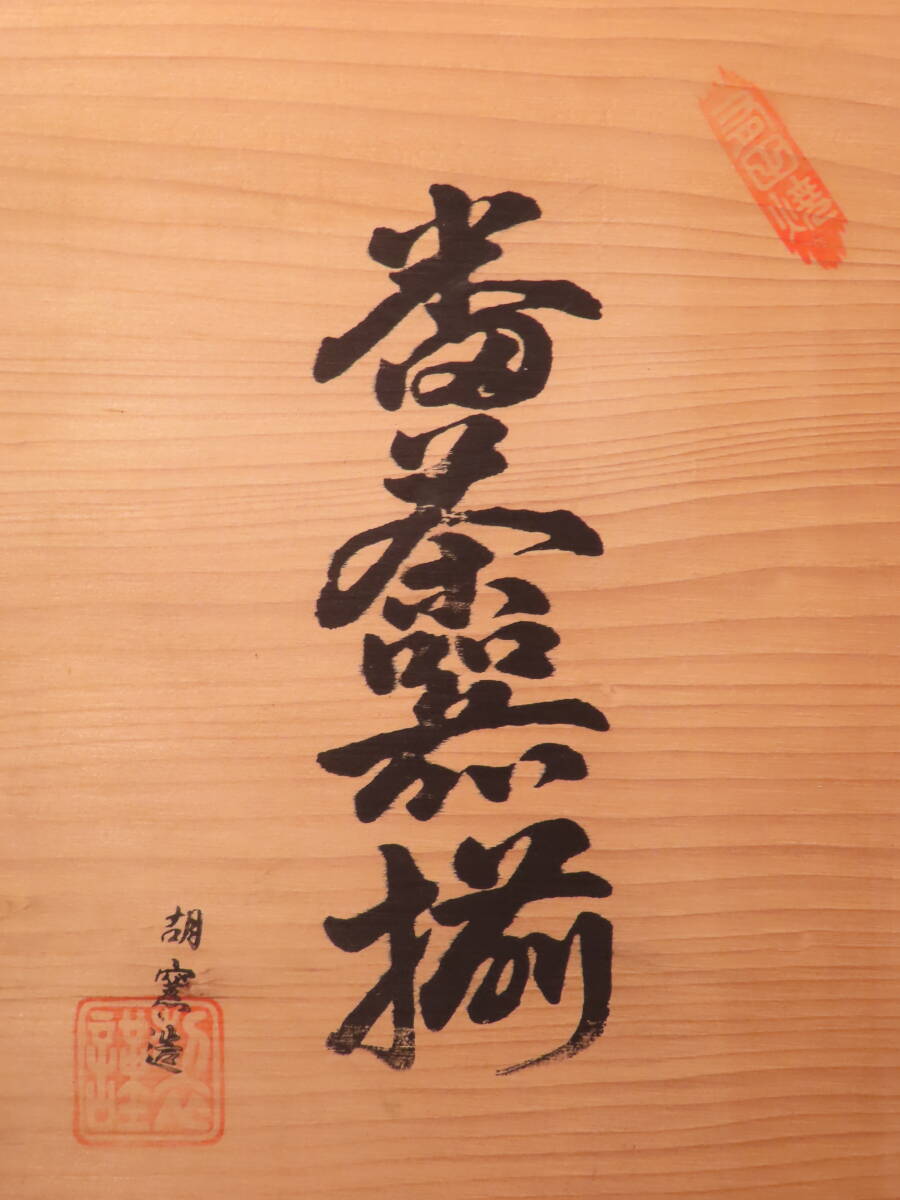 番茶器揃
胡窯造